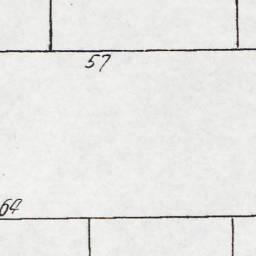 57
64